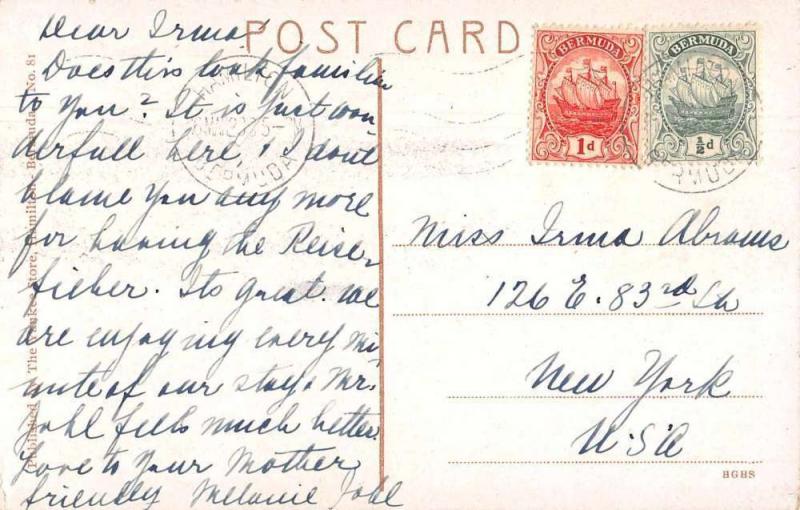 POST CARD
Dear Irma
Does this look familiar
to you? It is just won-
derfull here, I dont
blame you any more
for having the Reise-
fieber. Its great. we
are enjoying every mi-
nute of our stay. Mr.
Johl fells much better.
Love to your Mother
friendly Melanie Johl
BERMUDA
1d
BERMUDA
½d
HAMILTON
BERMUDA
Miss Irma Abrams
126 E. 83rd St
New York
U.S.A
Published The Yankee Store, Hamilton, Bermuda. No. 81
HGHS